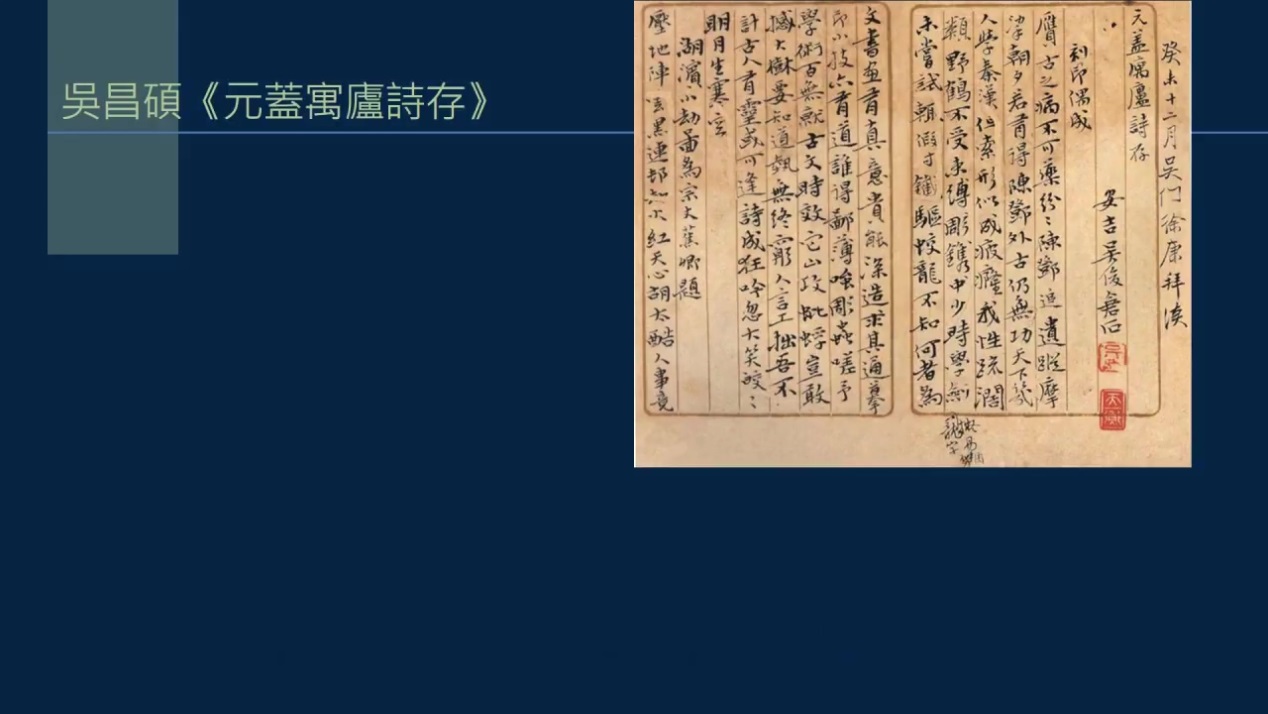 吳昌碩《元蓋寓廬詩存》
癸未十二月吳門徐康拜讀
元蓋寓廬詩存
安吉吳俊倉石
刻印偶成
贗古之病不可藥紛〻陳鄧追遺蹤摩
挲朝夕若有得陳鄧外古仍無功天下幾
人學秦漢但索形似成疲癃我性疏闊
類野鶴不受束縛彫鐫中少時學劍
未嘗試輒假寸鐵驅蛟龍不知何者為
文書畫有真意貴能深造求其通摹
印小技亦有道誰得鄙薄嗤彫蟲嗟予
學術百無就古文時效它山攻蚍蜉豈敢
撼大樹要知道藝無終窮人言工拙吾不
計古人有靈或可逢詩成狂吟忽大笑皎〻
明月生寒空
湖濱小劫圖為宗大蕉鄉題
壓地陣雲黑連邨火紅天心胡太酷人事竟